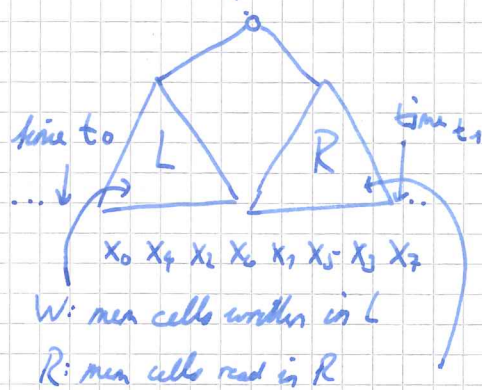 time t₀
time t₁
L
R
... ..
X₀ X₄ X₂ X₆ X₁ X₅ X₃ X₇
W: mem cells written in L
R: mem cells read in R